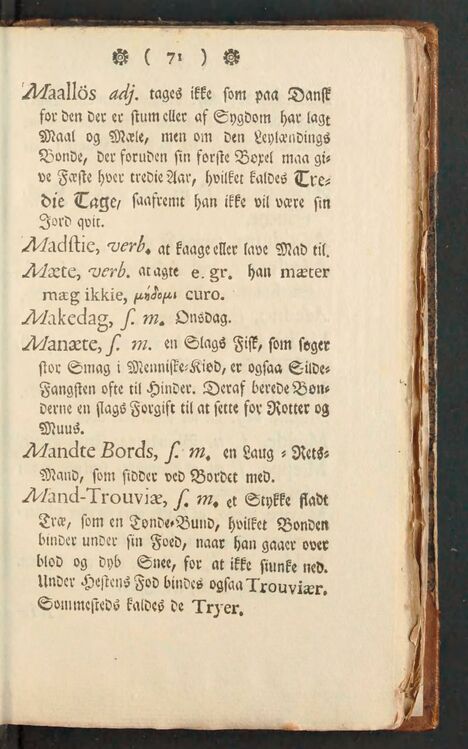 ( 71 )
Maallös adj. tages ikke som paa Dansk
for den der er stum eller af Sygdom har lagt
Maal og Mæle, men om den Leylændings
Bonde, der foruden sin første Boxel maa gi-
ve Fæste hver tredie Aar, hvilket kaldes Tre-
die Tage, saafremt han ikke vil være sin
Jord qvit.
Madstie, verb. at kaage eller lave Mad til.
Mæte, verb. at agte e. gr. han mæter
mæg ikkie, μήδομι curo.
Makedag, s. m. Onsdag.
Manæte, s. m. en Slags Fisk, som søger
stor Smag i Menniske-Kiød, er ogsaa Silde-
Fangsten ofte til Hinder. Deraf berede Bøn-
derne en slags Forgift til at sette for Rotter og
Muus.
Mandte Bords, s. m. en Laug-Rets-
Mand, som sidder ved Bordet med.
Mand-Trouviæ, s. m. et Stykke fladt
Træ, som en Tønde-Bund, hvilket Bonden
binder under sin Foed, naar han gaaer over
blod og dyb Snee, for at ikke siunke ned.
Under Hestens Fod bindes ogsaa Trouviær.
Sommesteds kaldes de Tryer.